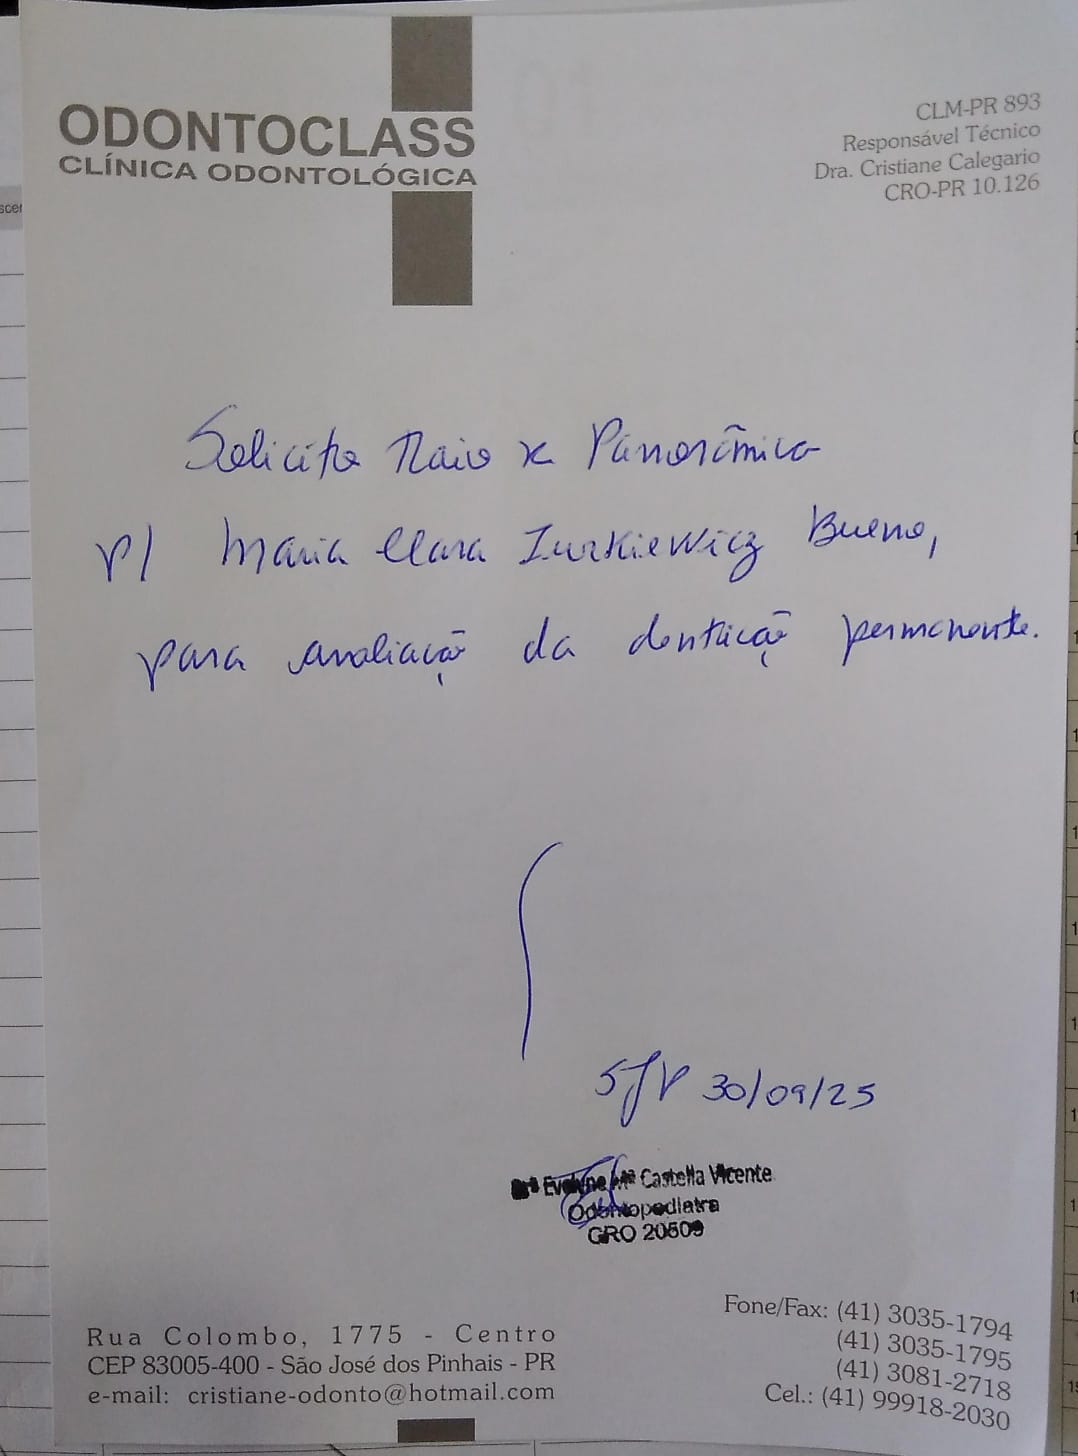 ODONTOCLASS
CLÍNICA ODONTOLÓGICA
CLM-PR 893
Responsável Técnico
Dra. Cristiane Calegario
CRO-PR 10.126
Solicito Raio x Panorâmica
p/ Maria Clara Zurkiewicz Bueno,
para avaliação da dentição permanente.
SJP 30/09/25
Drª Evelyne Mª Castella Vicente
Odontopediatra
CRO 20509
Rua Colombo, 1775 - Centro
CEP 83005-400 - São José dos Pinhais - PR
e-mail: cristiane-odonto@hotmail.com
Fone/Fax: (41) 3035-1794
(41) 3035-1795
(41) 3081-2718
Cel.: (41) 99918-2030